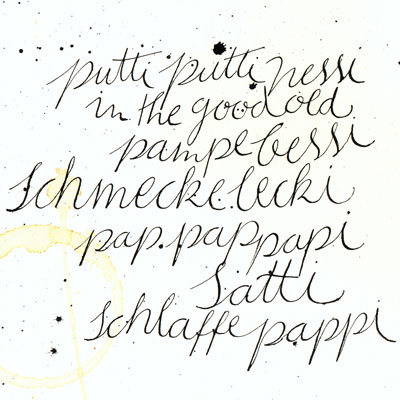 putti putti nessi
in the good old
pampebessi
Schmecke.lecki
pap.pappapi
Satti
Schlaffe pappi